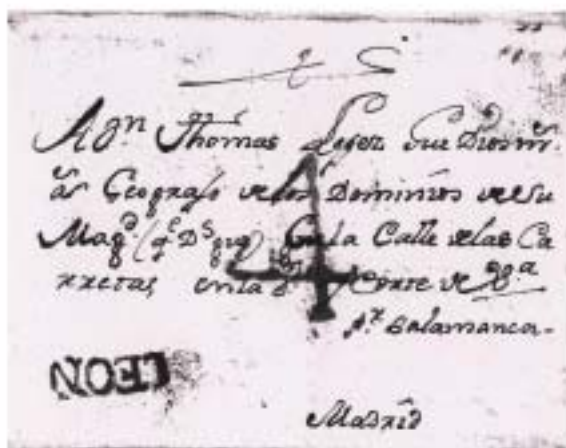 A Dn Thomas Lopez Gue Dios m.
as Geografo de los Dominios de su
Magd. (qe Ds gue) En la Calle de las Ca
rretas, en la Corte de
Pr Salamanca-
LEON
Madrid
4